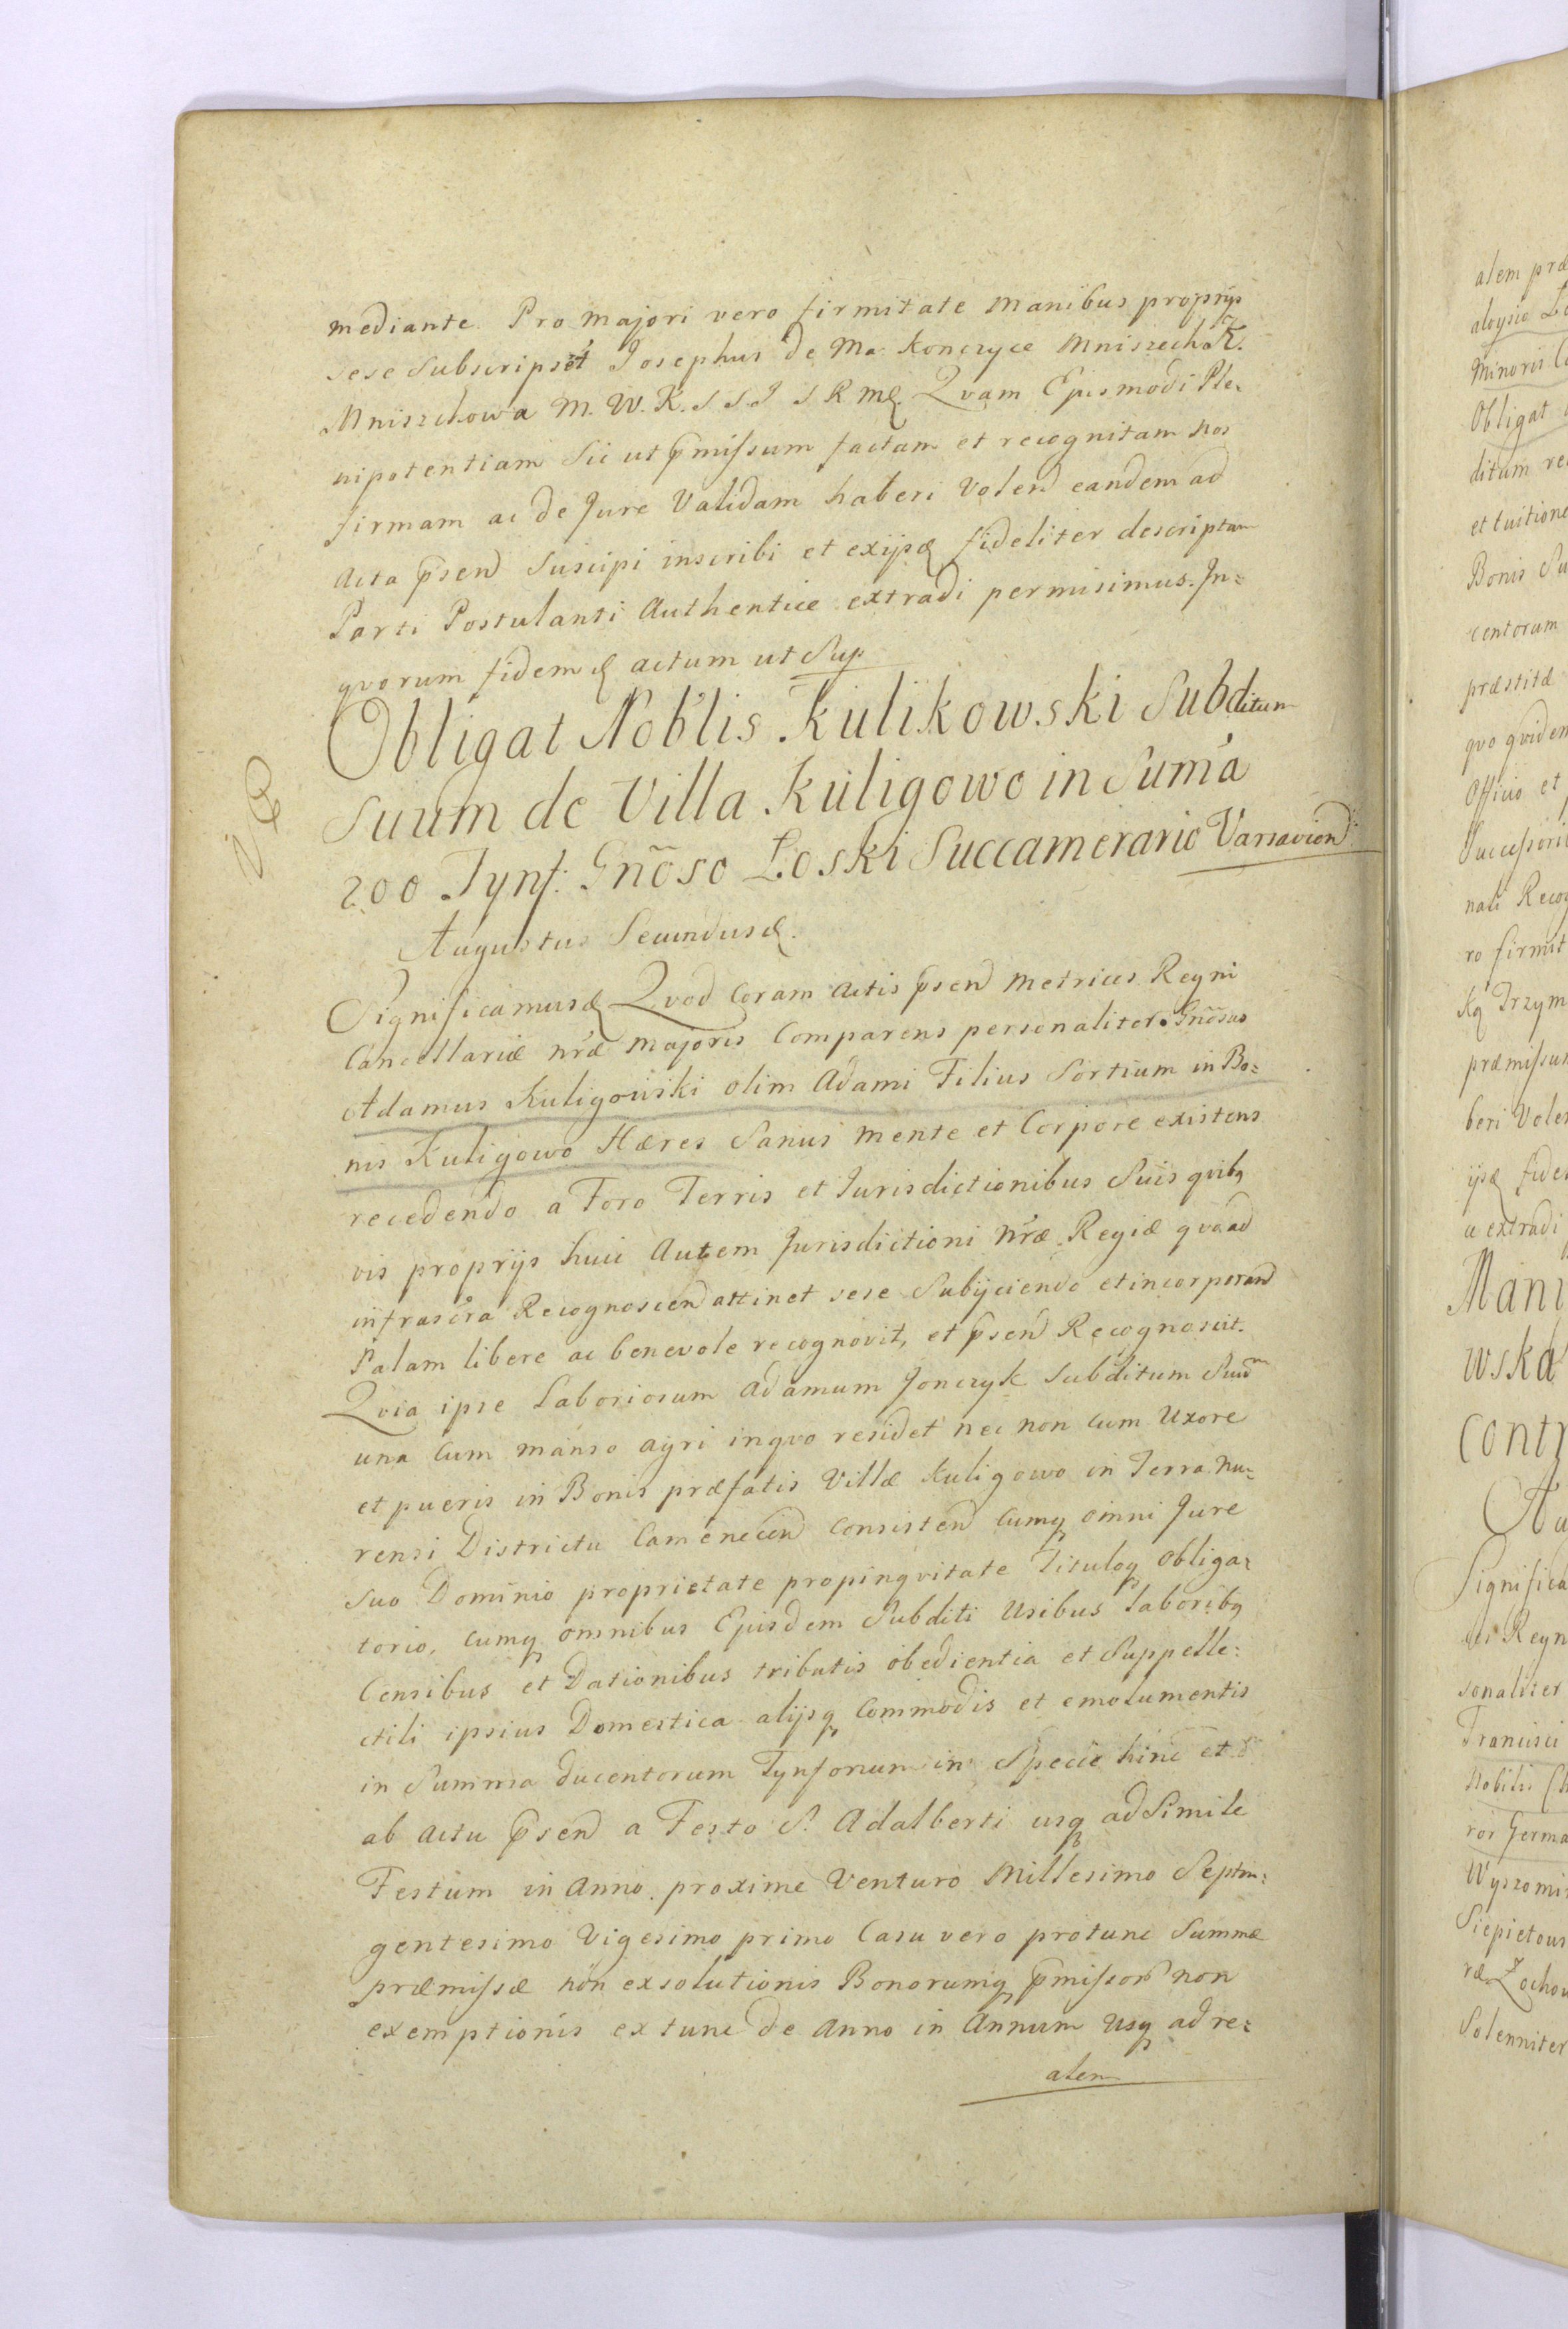 mediante. Pro majori vero firmitate manibus proprijs
sese subscripsēt Josephus de Ma: Konczyce Mniszech K.
Mniszchowa M. W. K. S S. J S R M& Qvam Ejusmodi Ple-
nipotentiam Sic ut p̄missum factam et recognitam nos
firmam ac de Jure Validam haberi Volend eandem ad
Acta p̄send Suscipi inscribi et exijs& fideliter descriptam
Parti Postulanti Authentice extradi permisimus. In=
qvorum fidem& actum ut Sup
Obligat Noblis Kulikowski Subditum
Suum de Villa Kuligowo in Suma
200 Tynf: Gnõso Łoski Succamerario Varsavien
NB
Augustus Secundus&.
Significamus& Qvod Coram Actis p̄send Metrices Regni
Cancellariæ nr̃æ Majoris Comparens personaliter Gnõsus
Adamus Kuligowski olim Adami Filius Sortium in Bo=
nis Kuligowo Hæres Sanus mente et Corpore existens
recedendo a Foro Terris et Jurisdictionibus Suis qvibq
vis proprijs huic Autem Jurisdictioni nr̃æ Regiæ qvoad
infrascr̃a Recognoscend attinet sese Subijciendo et incorporand
Palam libere ac benevole recognovit, et p̄send Recognoscit.
Qvia ipse Laboriosum Adamum Jonczyk Subditum Suum
una cum manso agri inqvo residet nec non cum Uxore
et pueris in Bonis præfatis Villæ Kuligowo in Terra Nu=
rensi Districtu Camenecen Consisten Cumq omni Jure
suo Dominio proprietate propinqvitate Tituloq Obliga=
torio, cumq omnibus Ejusdem Subditi Usibus laboribq
Censibus et Dationibus tributis obedientia et Suppelle=
ctili ipsius Domestica alijsq Commodis et emolumentis
in Summa ducentorum Tynforum in Specie hinc et
ab actu p̄send a Festo S. Adalberti usq ad Simile
Festum in Anno proxime Venturo Millesimo Septin=
gentesimo Vigesimo primo Casu vero protunc Summæ
præmissæ non exsolutionis Bonorumq p̄missor non
exemptionis ex tunc de Anno in Annum Usq ad re=
alem